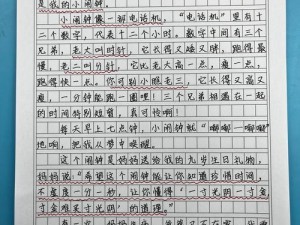 是我的小闹钟。
小闹钟像一部电话机，“电话机”里有十
二个数字，代表十二个小时。数字中间有三个
兄弟，老大叫时针，它长得又矮又胖，跑得最
慢，老二叫分针，它比老大高一点，瘦一点，
跑得快一点。你可别小瞧老三，它长得又高又
瘦，一分钟能跑一圈哩！三个兄弟相遇在一起
的时间特别短暂，真可怜呀！
每天早上七点钟，小闹钟就“嘟嘟——嘟嘟”
地响，把我从梦中唤醒。
这个闹钟是妈妈送给我的九岁生日礼物，
妈妈说：“希望这个闹钟能让你知道珍惜时间，
不虚度一分一秒，让你懂得‘一寸光阴一寸金，寸
金难买寸光阴’的道理。”